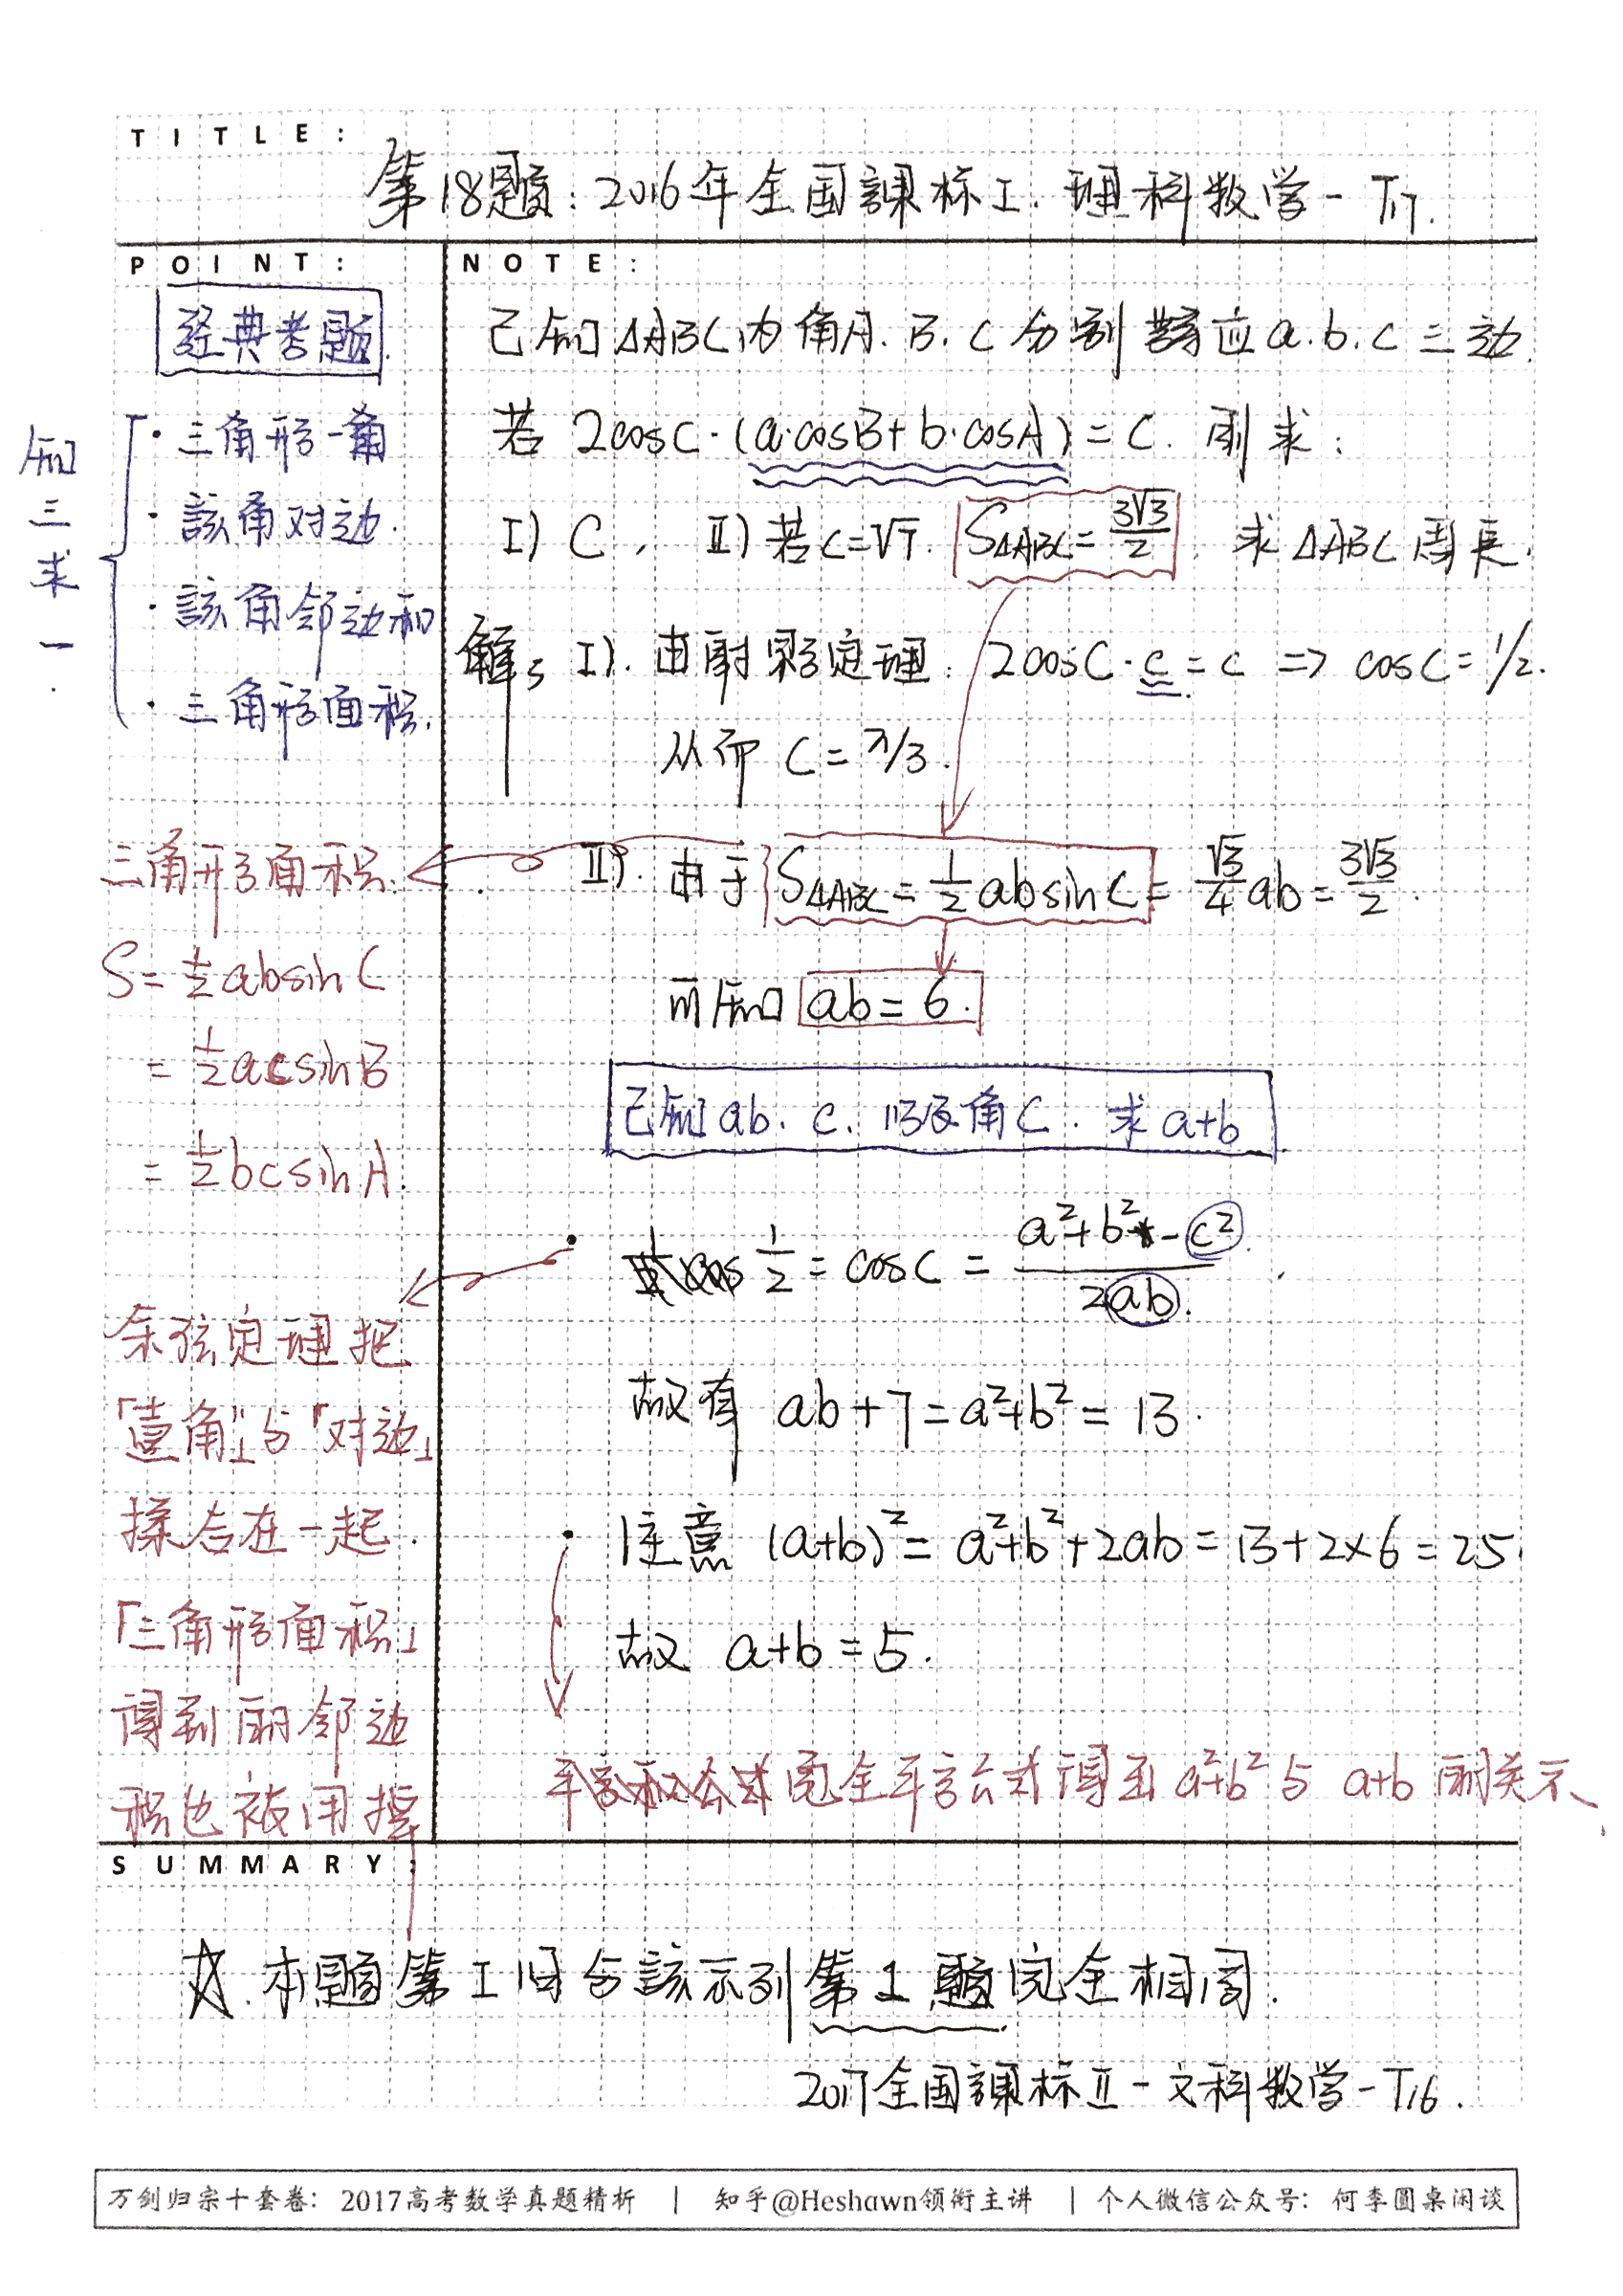 TITLE:
第18题：2016年全国課标I.理科数学-T17.
POINT:
经典考题.
知三求一.
·三角形一角
·該角对边.
·該角邻边和
·三角形面积.
三角形面积.
S=½absinC
=½acsinB
=½bcsinA.
余弦定理把
「壹角」与「对边」
揉合在一起.
「三角形面积」
得到两邻边
积也被用掉
NOTE:
已知△ABC内角A.B.C分别对应a.b.c三边.
若 2cosC·(a·cosB+b·cosA)=C. 则求:
I) C, II)若c=√7. S△ABC=3√3/2, 求△ABC周長.
解: I). 由射影定理: 2cosC·c=c => cosC=1/2.
从而 C=π/3.
II). 由于 S△ABC=½absinC=√3/4 ab=3√3/2.
可知 ab=6.
已知ab. c. 以及角C. 求a+b
1/2=cosC=(a²+b²-c²)/2ab.
故有 ab+7=a²+b²=13.
·注意 (a+b)²=a²+b²+2ab=13+2×6=25.
故 a+b=5.
完全平方公式得到a²+b²与 a+b 的关系
SUMMARY:
☆.本题第I问与該系列第1题完全相同.
2017全国課标II-文科数学-T16.
万剑归宗十套卷：2017高考数学真题精析 | 知乎@Heshawn领衔主讲 | 个人微信公众号：何李圆桌闲谈